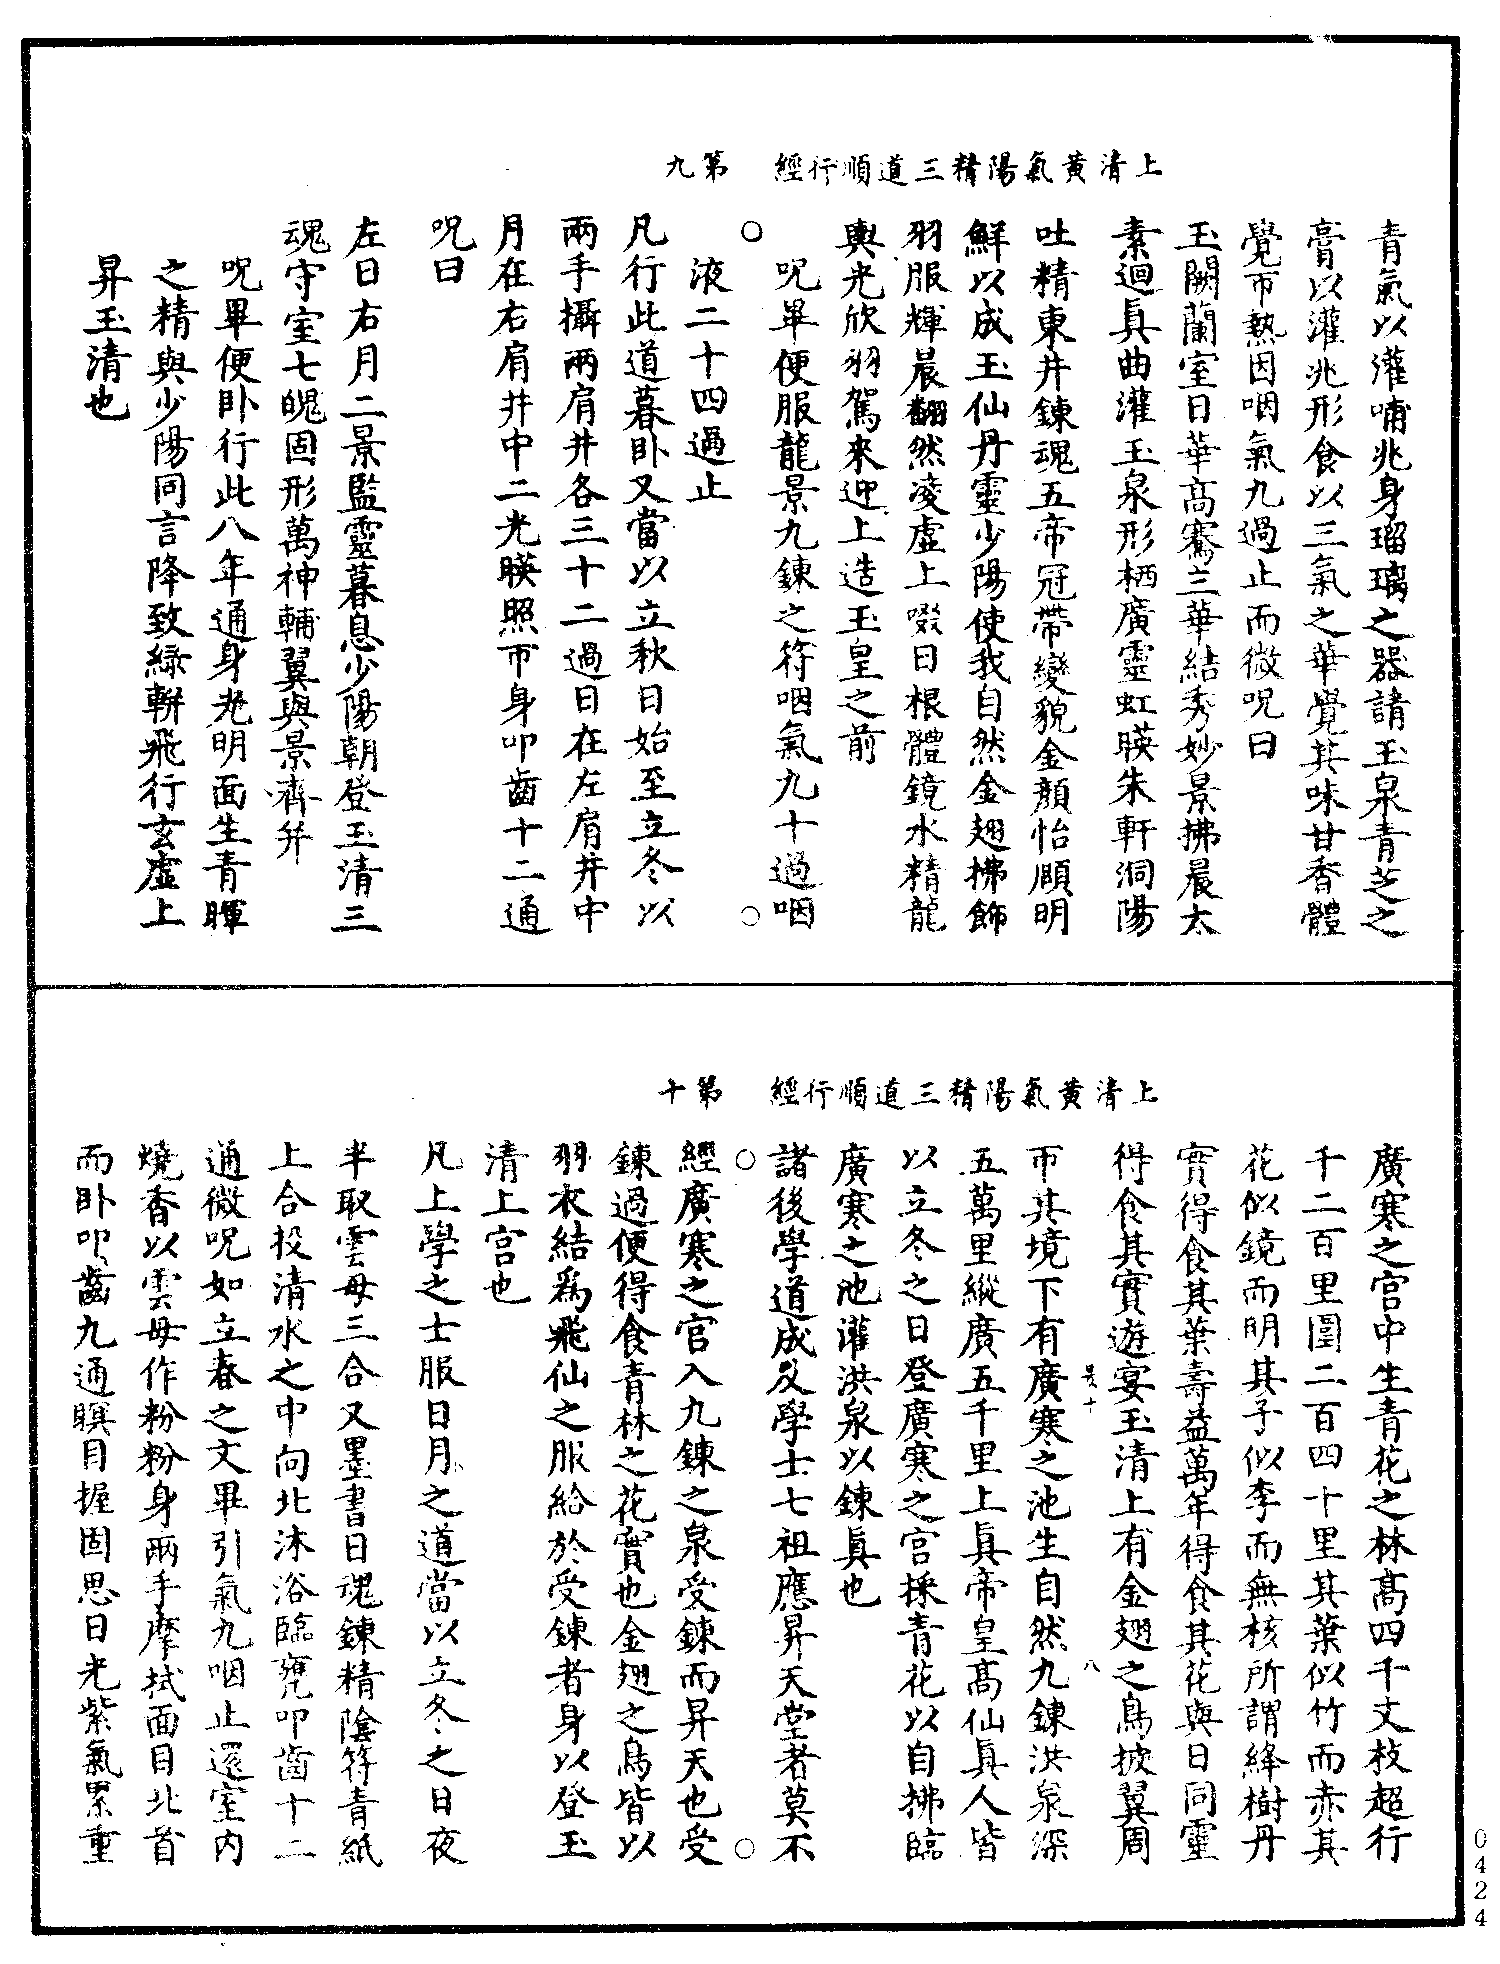 上清黃氣陽精三道順行經　第九
青氣以灌哺兆身瑠璃之器請玉泉青芝之
膏以灌兆形食以三氣之華覺其味甘香體
覺帀熱因咽氣九過止而微呪曰
玉闕蘭室日華高騫三華結秀妙景拂晨太
素迴眞曲灌玉泉形栖廣靈虹暎朱軒洞陽
吐精東井鍊魂五帝冠帶變貌金顏怡頤明
鮮以成玉仙丹靈少陽使我自然金翅拂飾
羽服輝晨翻然凌虛上啜日根體鏡水精龍
輿光欣羽駕來迎上造玉皇之前
呪畢便服龍景九鍊之符咽氣九十過咽
液二十四過止
凡行此道暮卧又當以立秋日始至立冬以
兩手攝兩肩井各三十二過日在左肩井中
月在右肩井中二光暎照帀身叩齒十二通
呪曰
左日右月二景監靈暮息少陽朝登玉清三
魂守室七魄固形萬神輔翼與景齊幷
呪畢便卧行此八年通身光明面生青暉
之精與少陽同言降致綠軿飛行玄虛上
昇玉清也
上清黃氣陽精三道順行經　第十
廣寒之宮中生青花之林高四千丈枝超行
千二百里圍二百四十里其葉似竹而赤其
花似鏡而明其子似李而無核所謂絳樹丹
實得食其葉壽益萬年得食其花與日同靈
得食其實遊宴玉清上有金翅之鳥披翼周
帀其境下有廣寒之池生自然九鍊洪泉深
五萬里縱廣五千里上眞帝皇高仙眞人皆
以立冬之日登廣寒之宮採青花以自拂臨
廣寒之池灌洪泉以鍊眞也
諸後學道成及學士七祖應昇天堂者莫不
經廣寒之官入九鍊之泉受鍊而昇天也受
鍊過便得食青林之花實也金翅之鳥皆以
羽衣結爲飛仙之服給於受鍊者身以登玉
清上宮也
凡上學之士服日月之道當以立冬之日夜
半取雲母三合又墨書日魂鍊精陰符青紙
上合投清水之中向北沐浴臨甕叩齒十二
通微呪如立春之文畢引氣九咽止還室內
燒香以雲母作粉粉身兩手摩拭面目北首
而卧叩齒九通瞑目握固思日光紫氣累重
0424